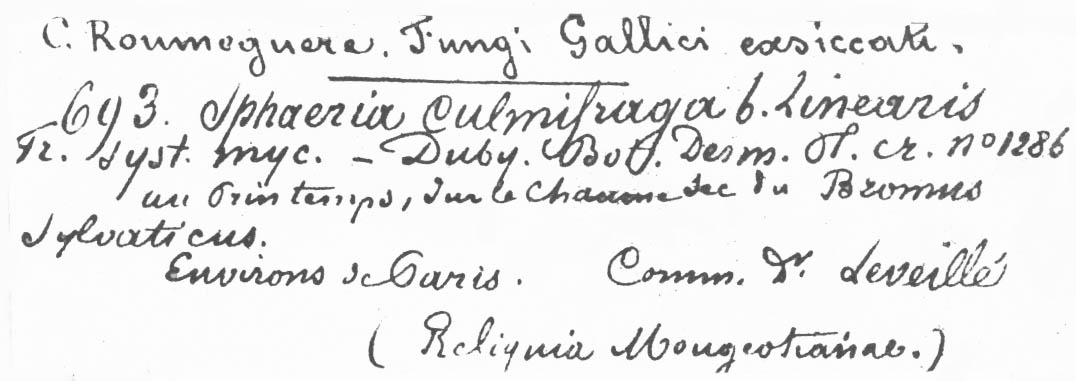 C. Roumeguere. Fungi Gallici exsiccati.
693. Sphaeria Culmifraga b. Linearis
Fr. Syst. myc. - Duby. Bot. Desm. Pl. cr. no 1286
au Printemps, sur le Chaume sec du Bromus
Sylvaticus.
Environs de Paris. Comm. Dr. Leveillé
(Reliquia Mougeotianae.)